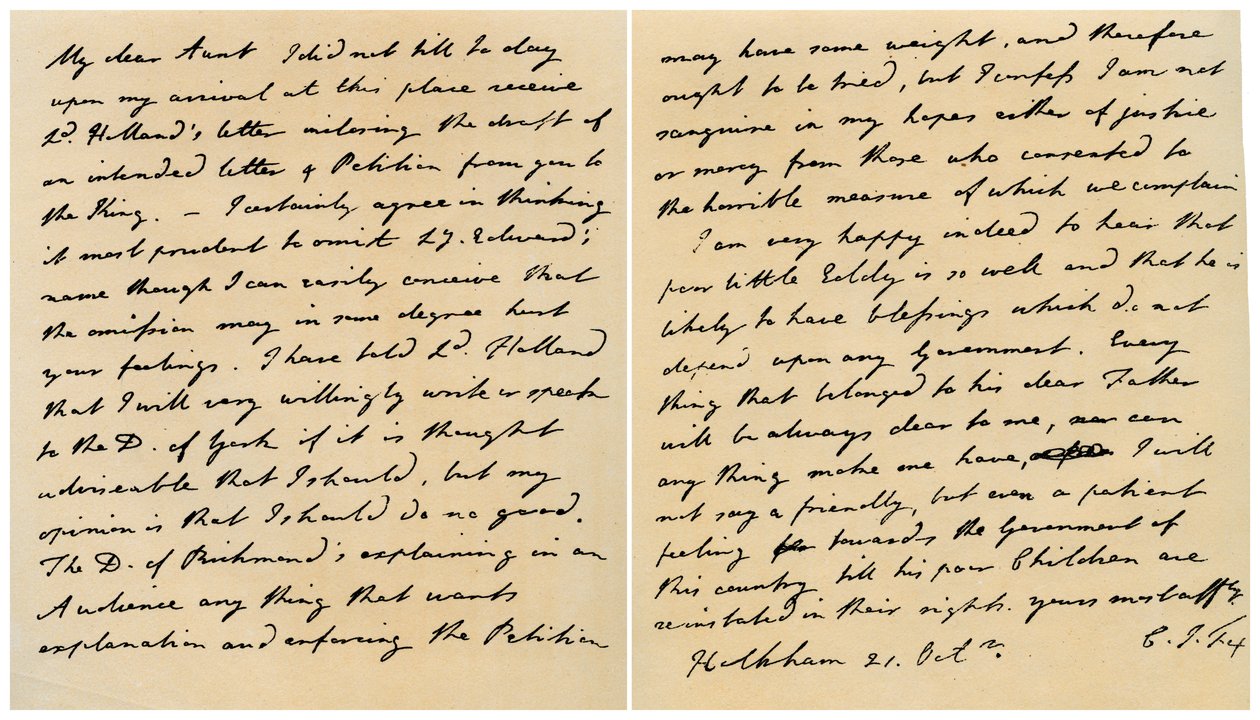 My dear Aunt I did not till to day
upon my arrival at this place receive
Ld. Holland's letter inclosing the draft of
an intended letter & Petition from you to
the King. — I certainly agree in thinking
it most prudent to omit Ld. Edward's
name though I can easily conceive that
the omission may in some degree hurt
your feelings. I have told Ld. Holland
that I will very willingly write or speak
to the D. of York if it is thought
adviseable that I should, but my
opinion is that I should do no good.
The D. of Richmond's explaining in an
Audience any thing that wants
explanation and enforcing the Petition
may have some weight, and therefore
ought to be tried, but I confess I am not
sanguine in my hopes either of justice
or mercy from those who consented to
the horrible measure of which we complain
I am very happy indeed to hear that
poor little Eddy is so well and that he is
likely to have blessings which do not
depend upon any Government. Every
thing that belonged to his dear Father
will be always dear to me, nor can
any thing make me have, I will
not say a friendly, but even a patient
feeling towards the Government of
this country till his poor Children are
reinstated in their rights. yours most affly.
C. J. Fox
Holkham 21. Octr.